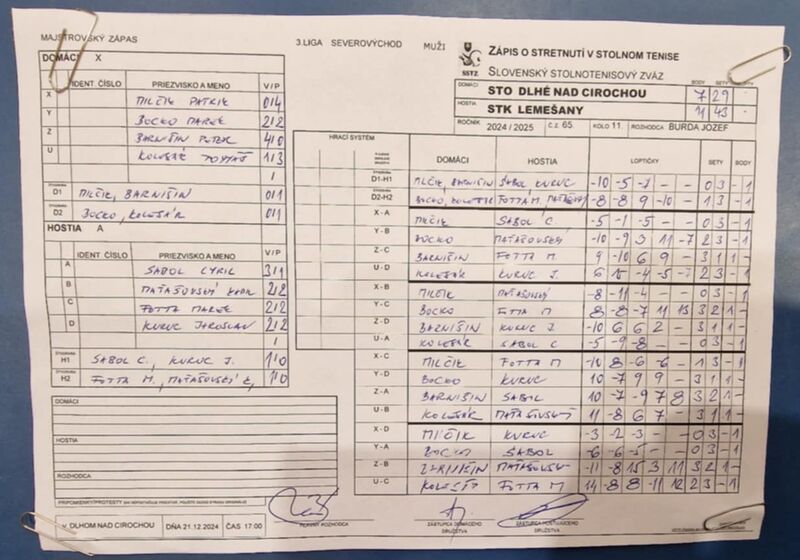 MAJSTROVSKÝ ZÁPAS
3.LIGA SEVEROVÝCHOD MUŽI
ZÁPIS O STRETNUTÍ V STOLNOM TENISE
SSTZ SLOVENSKÝ STOLNOTENISOVÝ ZVÄZ
BODY SETY
DOMÁCI STO DLHÉ NAD CIROCHOU 7 29
HOSTIA STK LEMEŠANY 11 43
ROČNÍK 2024 / 2025 Č.Z. 65. KOLO 11. ROZHODCA BURDA JOZEF
DOMÁCI X
IDENT. ČÍSLO PRIEZVISKO A MENO V/P
X MILČIK PATRIK 0/4
Y BOCKO MAREK 2/2
Z BARNIŠIN PETER 4/0
U KOLESÁR 1/3
/
D1 MILČIK, BARNIŠIN 0/1
D2 BOCKO, KOLESÁR 0/1
HOSTIA A
IDENT. ČÍSLO PRIEZVISKO A MENO V/P
A SABOL CYRIL 3/1
B MAŤAŠOVSKÝ 2/2
C FOTTA MAREK 2/2
D KURUC JAROSLAV 2/2
/
H1 SABOL C., KURUC J. 1/0
H2 FOTTA M., MAŤAŠOVSKÝ 1/0
DOMÁCI
HOSTIA
ROZHODCA
HRACÍ SYSTÉM DOMÁCI HOSTIA LOPTIČKY SETY BODY
D1-H1 MILČIK, BARNIŠIN SABOL, KURUC -10 -5 -7 - - 0 3 - 1
D2-H2 BOCKO, KOLESÁR FOTTA M, -8 -8 9 -10 - 1 3 - 1
X - A MILČIK SABOL C. -5 -1 -5 - - 0 3 - 1
Y - B BOCKO MAŤAŠOVSKÝ -10 -9 3 11 -7 2 3 - 1
Z - C BARNIŠIN FOTTA M 9 -10 6 9 - 3 1 1 -
U - D KOLESÁR KURUC J. 6 15 -4 -5 -7 2 3 - 1
X - B MILČIK MAŤAŠOVSKÝ -8 -11 -4 - - 0 3 - 1
Y - C BOCKO FOTTA M 8 -8 -7 11 13 3 2 1 -
Z - D BARNIŠIN KURUC J -10 6 6 2 - 3 1 1 -
U - A KOLESÁR SABOL C -5 -9 -8 - - 0 3 - 1
X - C MILČIK FOTTA M -10 8 -6 -6 - 1 3 - 1
Y - D BOCKO KURUC 10 -7 9 9 - 3 1 1 -
Z - A BARNIŠIN SABOL 10 -7 -9 7 8 3 2 1 -
U - B KOLESÁR MAŤAŠOVSKÝ 11 -8 6 7 - 3 1 1 -
X - D MILČIK KURUC -3 -2 -3 - - 0 3 - 1
Y - A BOCKO SABOL -6 -6 -5 - - 0 3 - 1
Z - B BARNIŠIN -11 -8 15 3 11 3 2 1 -
U - C FOTTA M 14 -8 8 -11 -12 2 3 - 1
PRIPOMIENKY/PROTESTY
V. DLHOM NAD CIROCHOU DŇA 21.12.2024 ČAS 17:00
HLAVNÝ ROZHODCA
ZÁSTUPCA DOMÁCEHO DRUŽSTVA
ZÁSTUPCA HOSTUJÚCEHO DRUŽSTVA